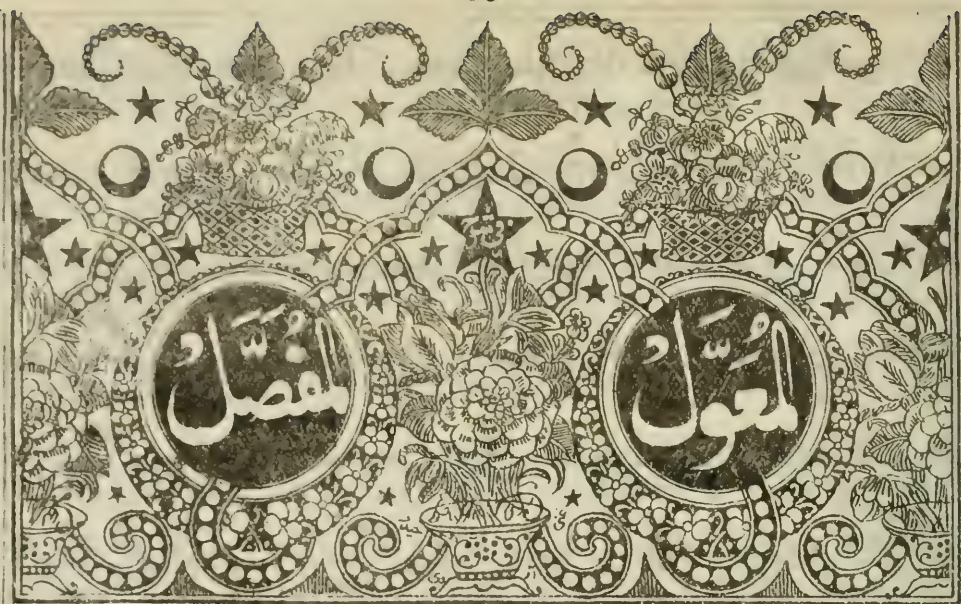 المُعَوَّلُ
المُفَصَّلُ